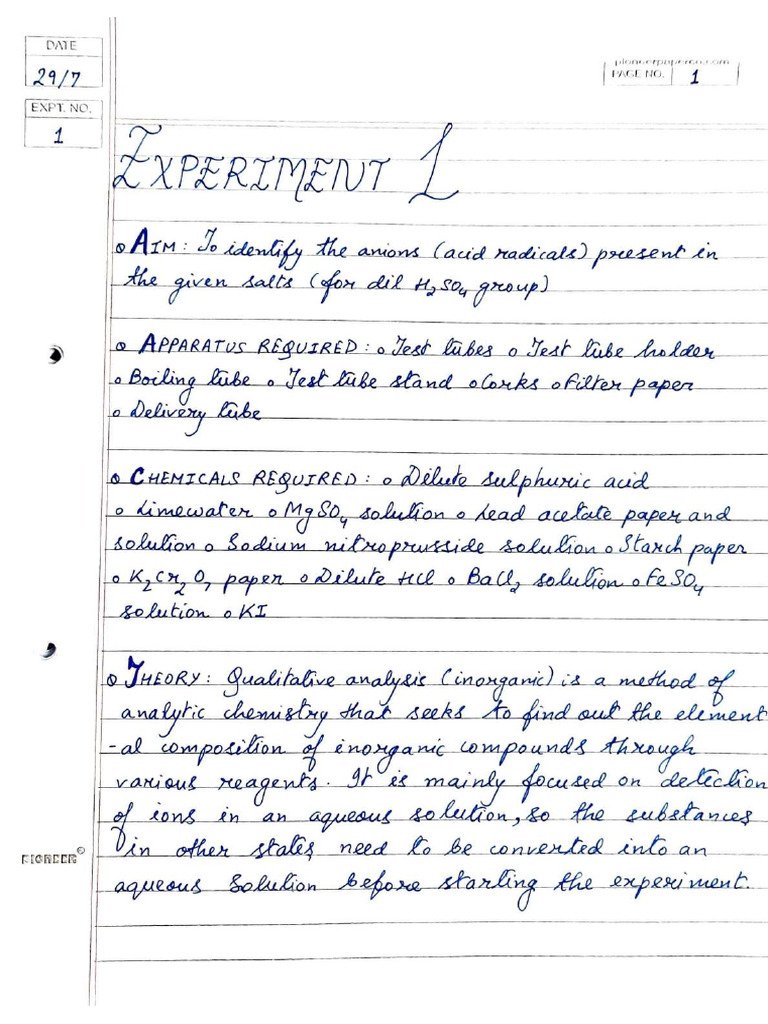 DATE
29/7
EXPT. NO.
1
pioneerpaperco.com
PAGE NO. 1
EXPERIMENT 1
AIM: To identify the anions (acid radicals) present in
the given salts (for dil H₂SO₄ group)
APPARATUS REQUIRED: o Test tubes o Test tube holder
o Boiling tube o Test tube stand o Corks o Filter paper
o Delivery tube
CHEMICALS REQUIRED: o Dilute sulphuric acid
o Limewater o MgSO₄ solution o Lead acetate paper and
solution o Sodium nitroprusside solution o Starch paper
o K₂Cr₂O₇ paper o Dilute HCl o BaCl₂ solution o FeSO₄
solution o KI
THEORY: Qualitative analysis (inorganic) is a method of
analytic chemistry that seeks to find out the element
-al composition of inorganic compounds through
various reagents. It is mainly focused on detection
of ions in an aqueous solution, so the substances
in other states need to be converted into an
aqueous solution before starting the experiment.
PIONEER